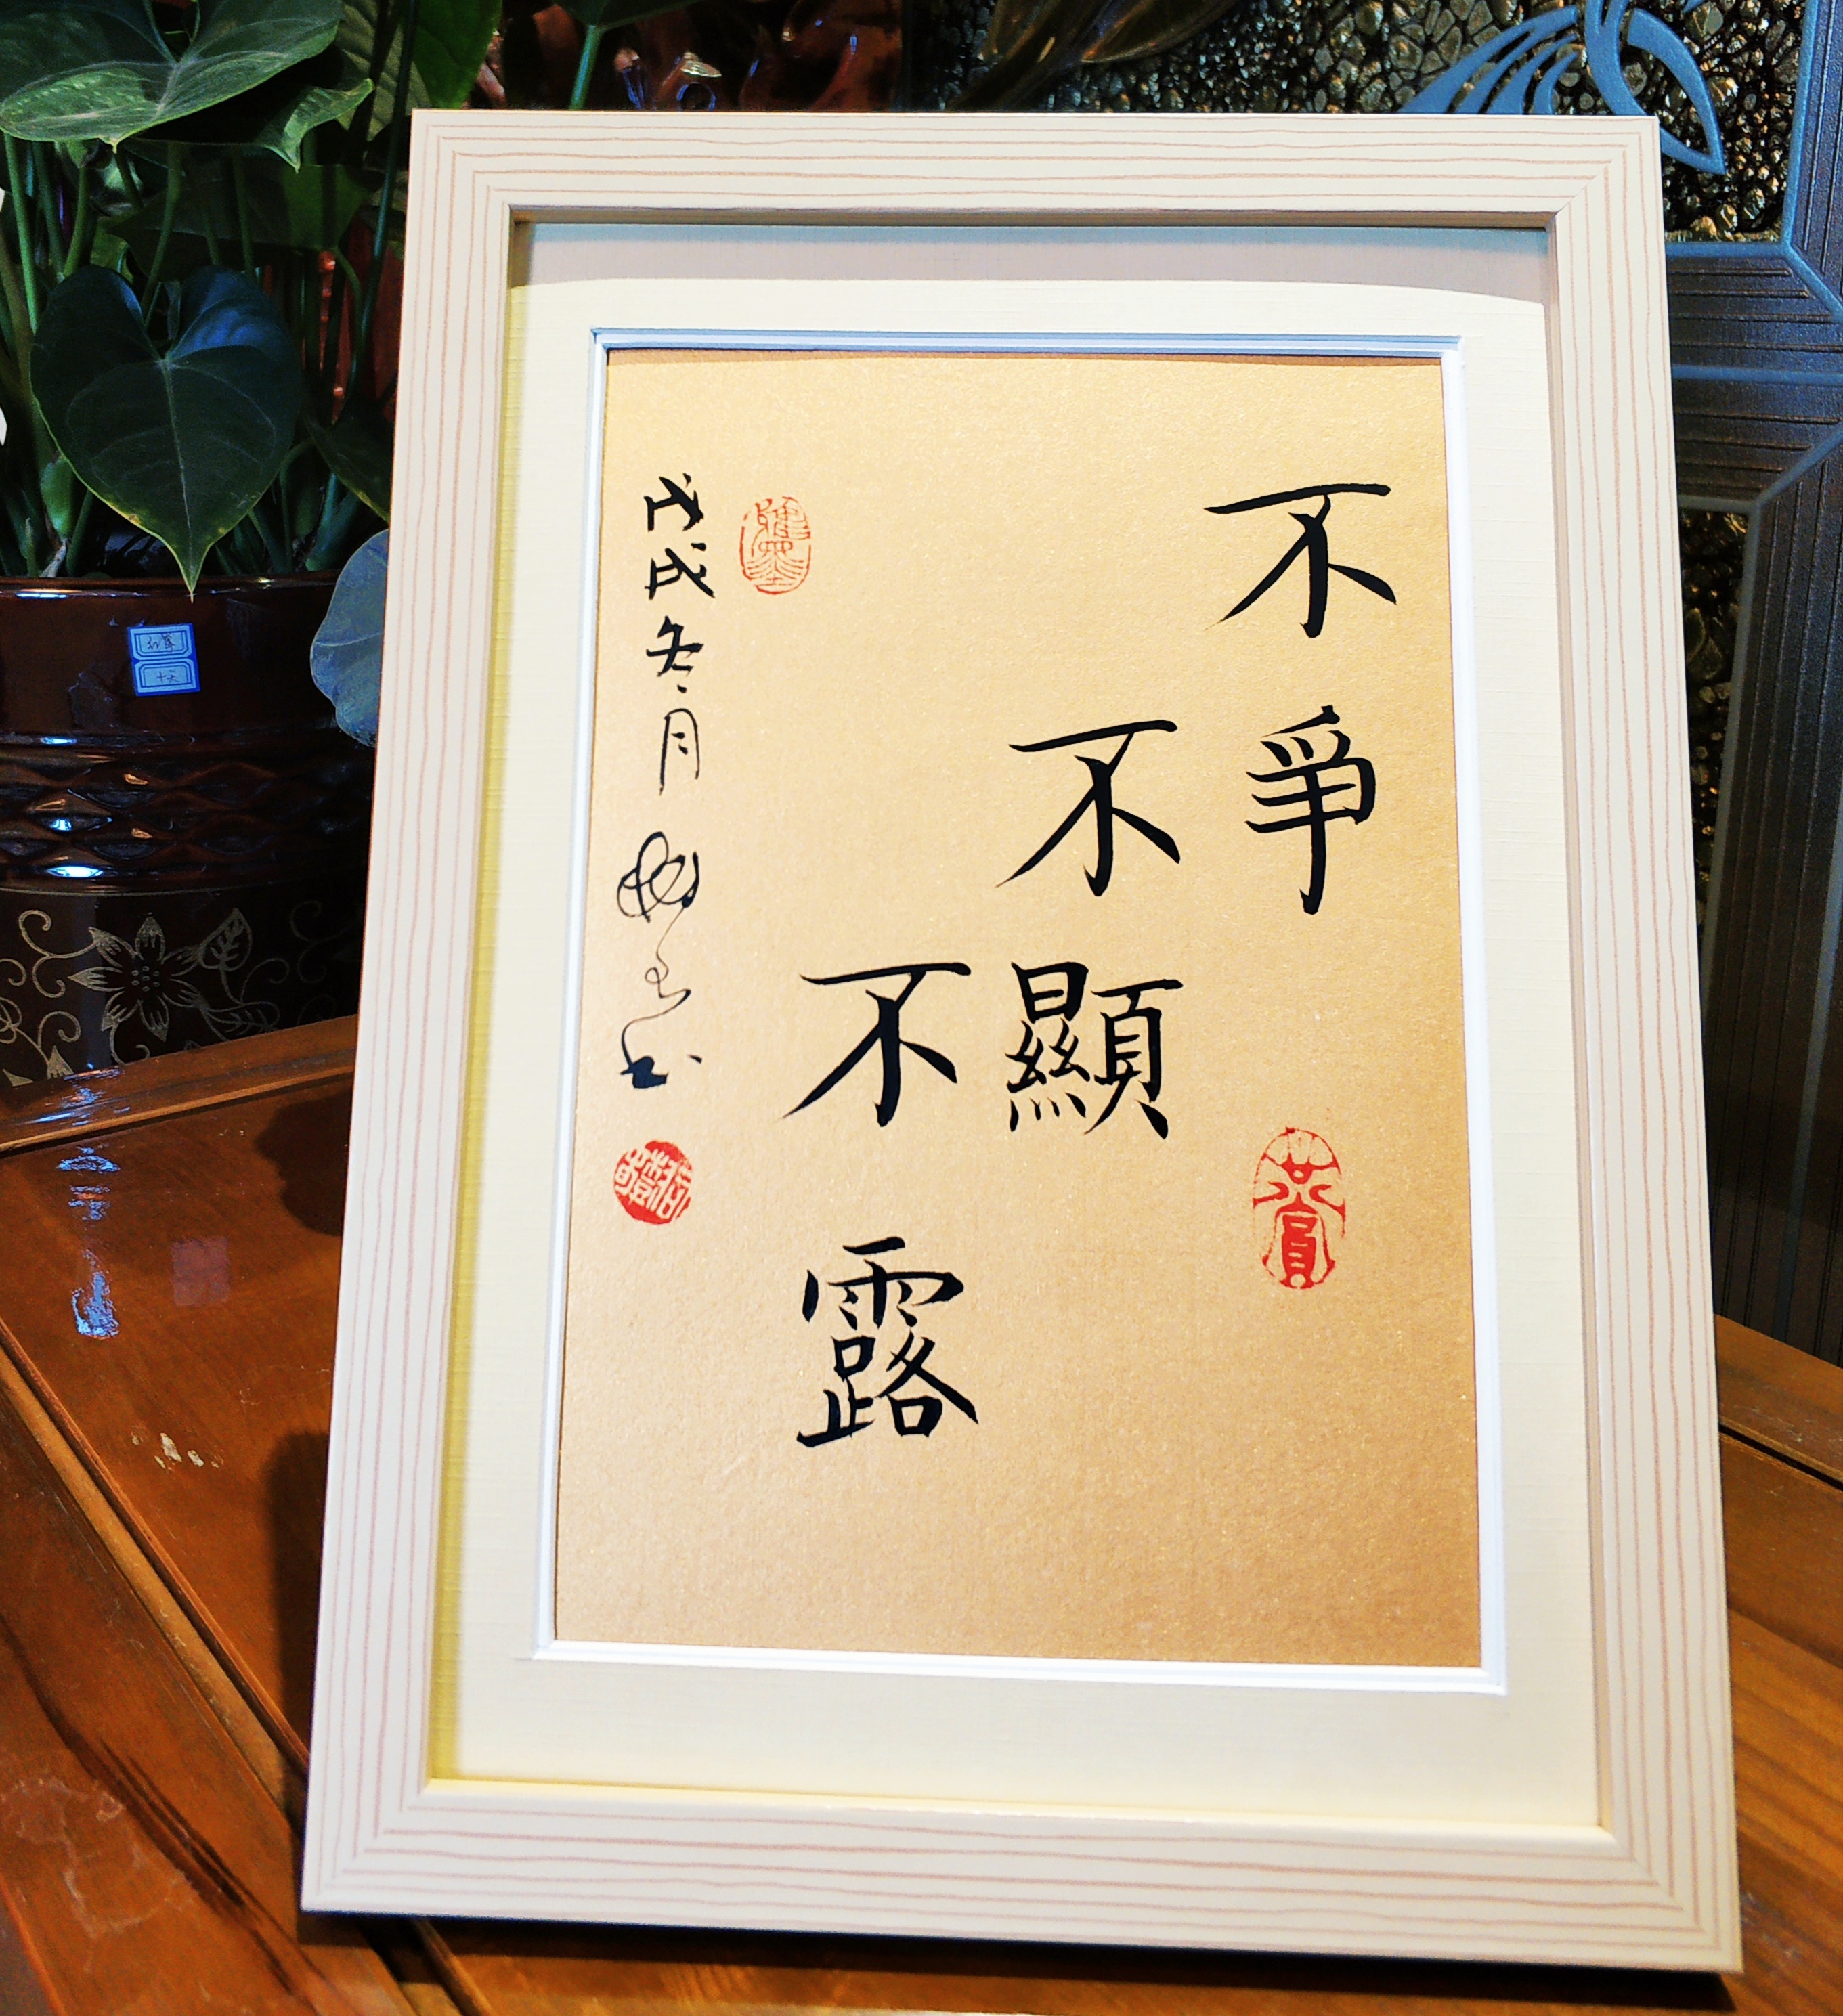 不爭
不顯
不露
戊戌冬月
共賞